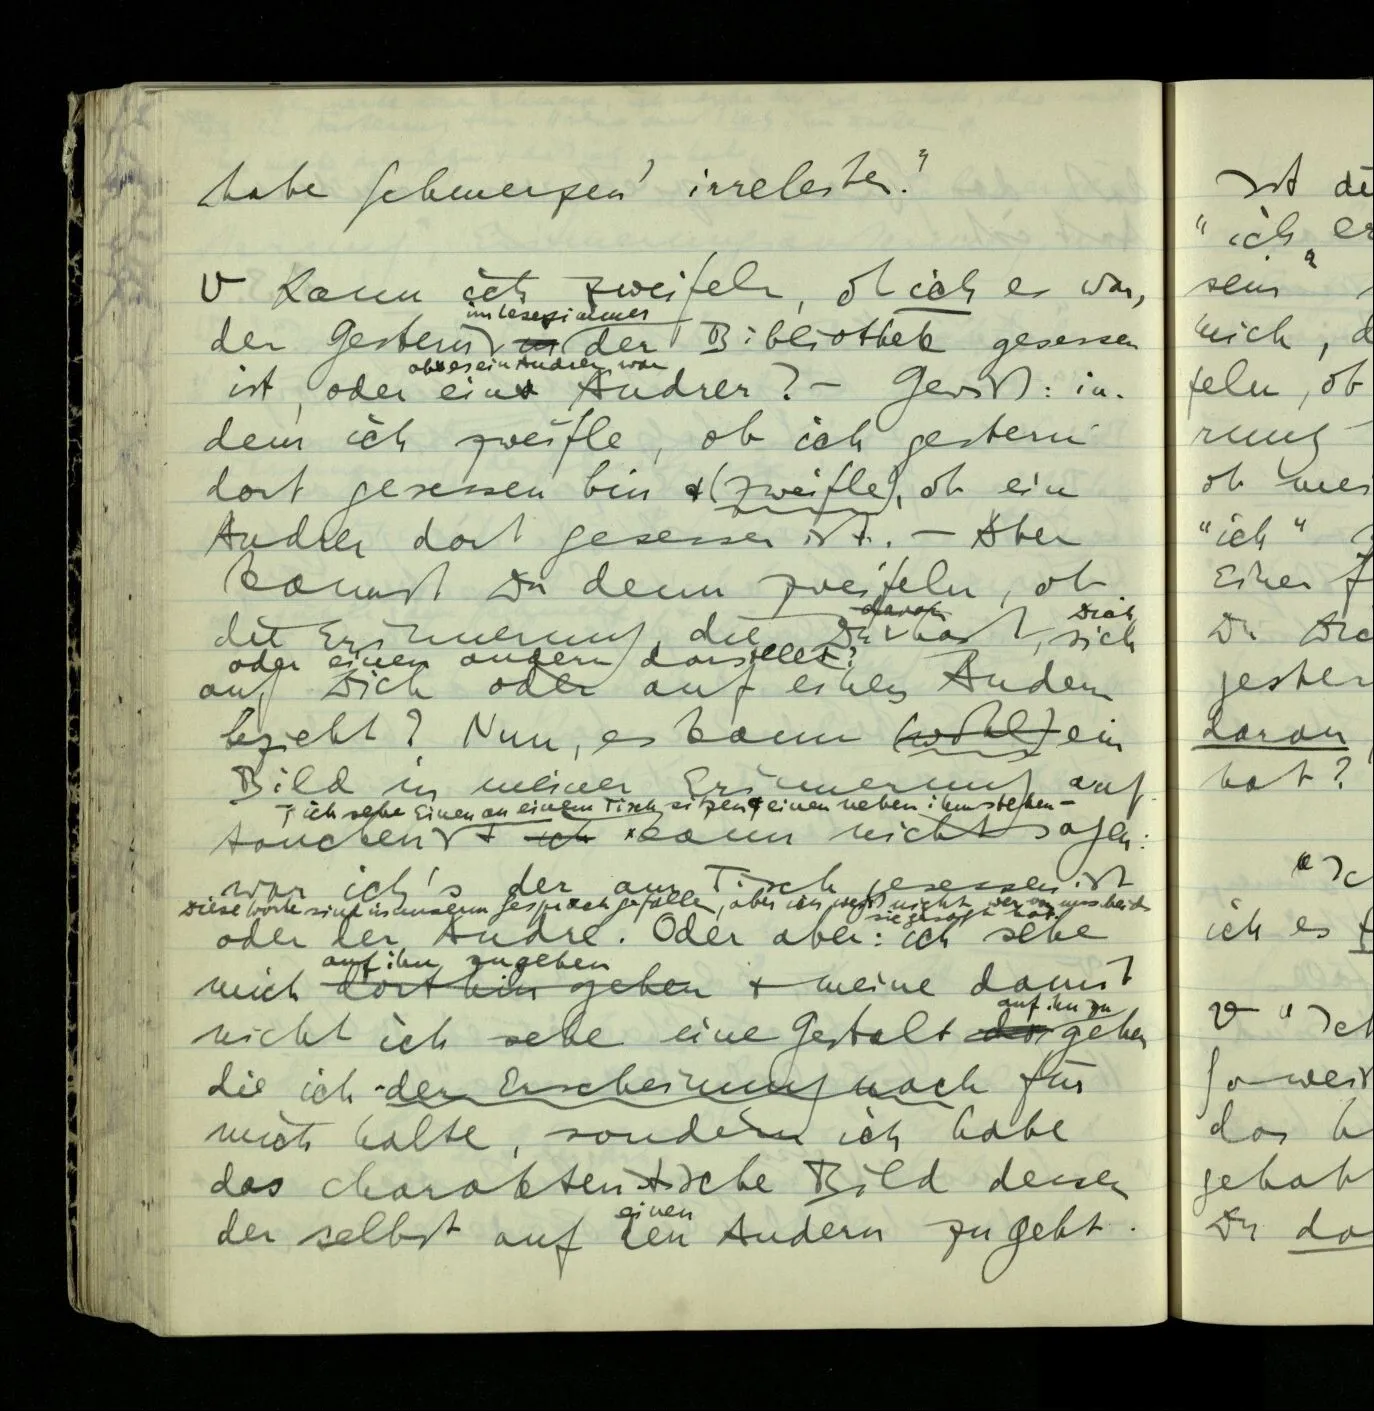 habe Schmerzen' irreleiten?"
V Kann ich zweifeln, ob ich es war,
im Lesezimmer
der Gestern in der Bibliothek gesessen
ob es ein Andrer war
ist, oder ein Andrer? – Gewiß: in-
dem ich zweifle, ob ich gestern
dort gesessen bin & (zweifle), ob ein
Andrer dort gesessen ist. – Aber
kannst Du denn zweifeln, ob
davon Dich
die Erinnerung, die Du hast, sich
oder einen andern darstellt?
auf Dich oder auf einen Andern
bezieht? Nun, es kann (wohl) ein
Bild in meiner Erinnerung auf-
– ich sehe Einen an einem Tisch sitzen & einen neben ihm stehen –
tauchen & ich kann nicht sagen:
war ich's der am Tisch gesessen ist
Diese Worte sind in unserm Gespräch gefallen, aber ich weiß nicht wer von uns beiden
sie gesagt hat.
oder der Andre. Oder aber: ich sehe
auf ihn zugehen
mich dorthin gehen & meine damit
auf ihn zu
nicht ich sehe eine Gestalt gehen
die ich der Erscheinung nach für
mich halte, sondern ich habe
das charakteristische Bild dessen
einen
der selbst auf den Andern zugeht.
Ist di
"ich er
sein
mich, d
feln, ob
rung
ob mei
"ich"
Einer
Du Dic
gester
daran
hat?
"Ic
ich es
V "Ich
soweit
das h
gehabt
Du da